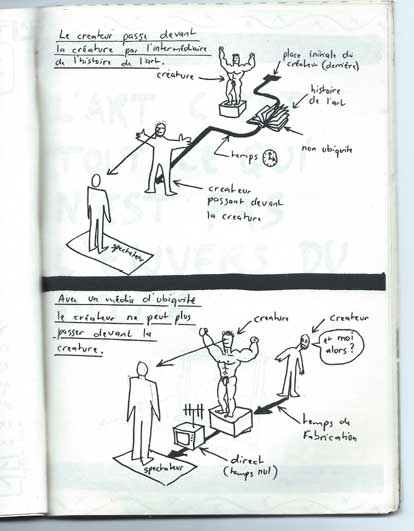 Le createur passe devant
la créature par l'intermédiaire
de l'histoire de l'art.
créature
place initiale du
créateur (derrière)
histoire
de l'art
non ubiquité
temps
createur
passant devant
la creature
spectateur
Avec un média d'ubiquité
le créateur ne peut plus
passer devant la
creature.
creature
createur
et moi
alors?
temps de
Fabrication
direct
(temps nul)
spectateur